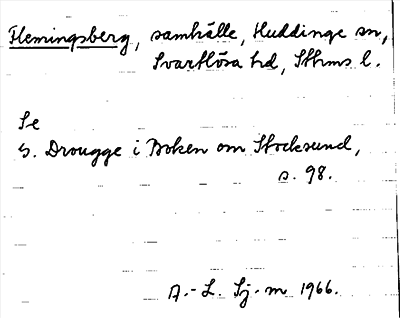 Flemingsberg, samhälle, Huddinge sn,
Svartlösa hd, Sthms l.
Se
G. Drougge i Boken om Stocksund,
s. 98.
A.-L. Sj-m 1966.